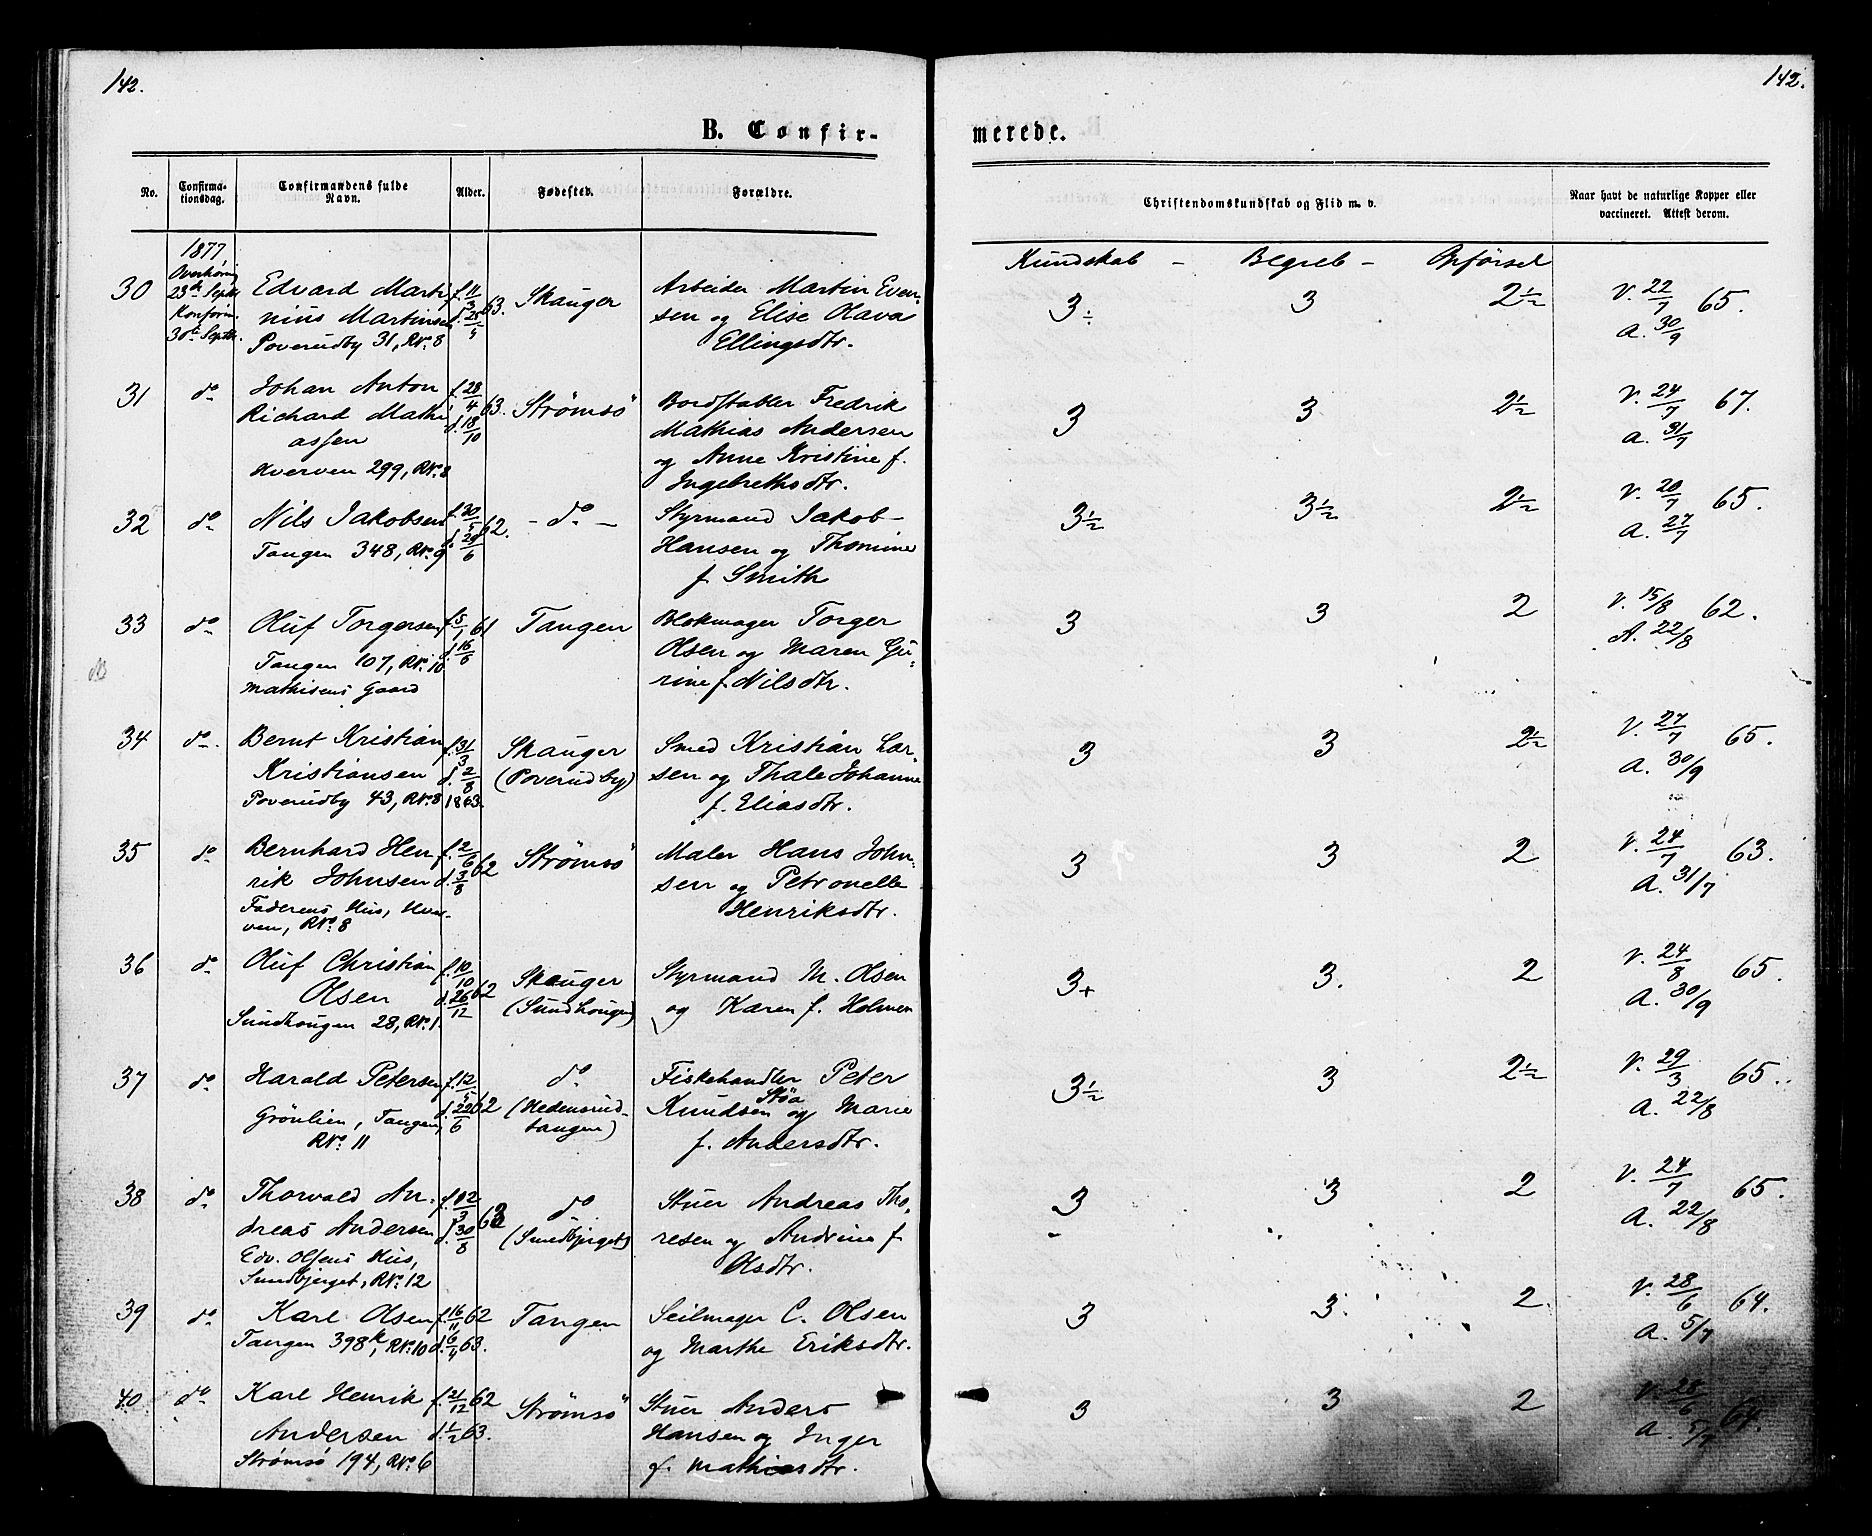 142.
142.
B. Confir-
merede.
No.
Confirma-
tionsdag.
Confirmandens fulde
Navn.
Alder.
Fødested.
Forældre.
Christendomskundskab og Flid m. v.
Naar havt de naturlige Kopper eller
vaccineret. Attest derom.
1877
Overhøring
23de Septr
Konfirm.
30te Septbr.
Kundskab - Begreb - Opførsel
30
Edvard Marti
nius Martinsen
Poverudby 31, RN: 8
f. 11/3 63.
d. 25/5
Skauger
Arbeider Martin Even-
sen og Elise Olava
Ellingsdtr.
3÷ 3 2½
V. 22/7 65.
A. 30/9
31 do
Johan Anton
Richard Mathi
assen
Hverven 299, RN: 8
f. 28/4 63.
d. 18/10
Strømsö
Bordstabler Fredrik
Mathias Andersen
og Anne Kristine f.
Ingebrethsdtr.
3 3 2½
V. 24/7 67.
A. 31/7
32 do
Nils Jakobsen
Tangen 348, RN: 9
f. 30/5 62.
d. 29/6
- do -
Styrmand Jakob
Hansen og Thomine
f. Smith
3½ 3½ 2½
V. 20/7 65.
A. 27/7
33 do
Oluf Torgersen
Tangen 107, RN: 10
Mathisens Gaard
f. 5/1 61
d. 16/6
Tangen
Blokmager Torger
Olsen og Maren Gu-
rine f. Nilsdtr.
3 3 2
V. 15/8 62.
A. 22/8
34 do.
Bernt Kristian
Kristiansen
Poverudby 43, RN: 8
f. 31/3
d. 2/8
1863.
Skauger
(Poverudby)
Smed Kristian Lar-
sen og Thale Johanne
f. Eliasdtr.
3 3 2½
V. 27/7 65.
A. 30/9
35 do
Bernhard Hen
rik Johnsen
Faderens Hus, Hver-
ven, RN: 8
f. 2/6 62
d. 3/8
Strømsö
Maler Hans John-
sen og Petronelle
Henriksdtr.
3 3 2
V. 24/7 63.
A. 31/7
36 do
Oluf Christian
Olsen
Sundhaugen 28, RN: 1
f. 10/10 62
d. 26/12
Skauger
(Sundhaugen)
Styrmand M. Olsen
og Karen f. Holmen
3+ 3. 2
V. 24/8 65.
A. 30/9
37 do
Harald Petersen
Grønlien, Tangen,
RN: 11
f. 12/5 62
d. 22/6
do
(Hedensrud-
tangen)
Fiskehandler Peter
Knudsen Støa og Marie
f. Andersdtr.
3½ 3 2½
V. 29/3 65.
A. 22/8
38 do
Thorvald An-
dreas Andersen
Edv. Olsens Hus,
Sundbjerget, RN: 12
f. 12/3 63
d. 30/8
do
(Sundbjerget)
Stuer Andreas Tho-
resen og Andrine f.
Olsdtr.
3 3 2
V. 24/7 65.
A. 22/8
39 do
Karl Olsen
Tangen 398k, RN: 10
f. 16/11 62
d. 6/4 63.
Tangen
Seilmager C. Olsen
og Marthe Eriksdtr.
3 3. 2.
V. 28/6 64.
A. 5/7
40 do
Karl Henrik
Andersen
Strømsø 194, RN: 6
f. 21/12 62
d. 1/2 63.
Strømsö
Stuer Anders
Hansen og Inger
f. Mathiasdtr.
3 3 2
V. 28/6 64.
A. 5/7